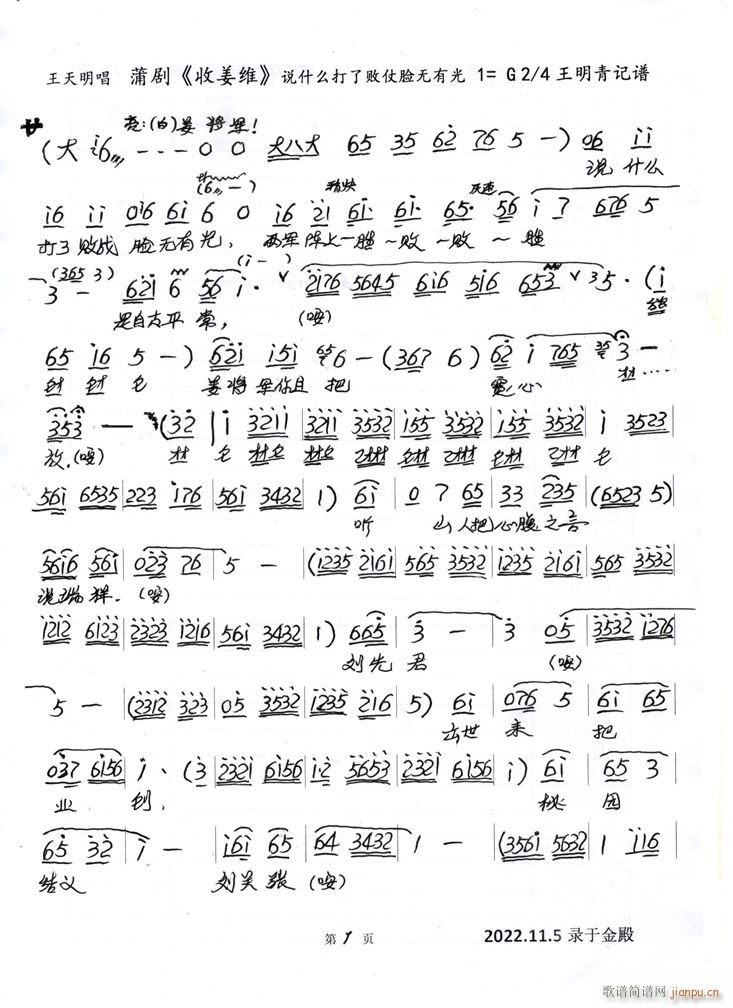 王天明唱 蒲剧《收姜维》说什么打了败仗脸无有光 1= G 2/4 王明青记谱
(白)姜将军!
(大 i6 - - - 0 0 大八大 65 35 62 76 5 - ) 06 ii
说 什么
(6 - )
稍快
i6 ii 0i6 6i 6 0 i6 2i 6i· 6i· 65· 56 i 7 676 5
打了败战 脸无有光, 两军阵上一胜~败~败~胜
(365 3) (i - )
3 - 62i 6 56 i· ∨ 2176 5645 6i6 5i6 653 ∨ 35· (i
是自古平常, (唉)
65 i6 5 - ) 62i i5i 6 - (367 6) 62 i 765 3 -
姜将军你且 把 宽心
353 - (32 | i 32ii | 32ii 3532 | i55 3532 | i55 3532 | i 3523
放.(唉)
56i 6535 | 223 i76 | 56i 3432 | 1) 6i | 0 7 65 | 33 235 | (6523 5)
听 山人把心腹之言
56i6 56i | 023 76 | 5 - | (i235 2i6i | 565 3532 | i235 2i6i | 565 3532
说端祥. (唉)
i2i2 6i23 | 2323 i2i6 | 56i 3432 | 1) 665 | 3 - | 3 05 | 3532 i276
刘先 君 (唉)
5 - | (2312 323 | 05 3532 | i235 2i6 | 5) 6i | 076 5 | 6i 65
去世 来 把
037 6i56 | i· (3 | 232i 6i56 | i·2 5653 | 232i 6i56 | i) 6i | 65 3
业 创, 桃 园
65 32 | i - | i6i 65 | 64 3432 | 1 - | (356i 5632 | 1 ii6
结义 刘关张 (唉)
第 1 页
2022.11.5 录于金殿
歌谱简谱网
jianpu.cn